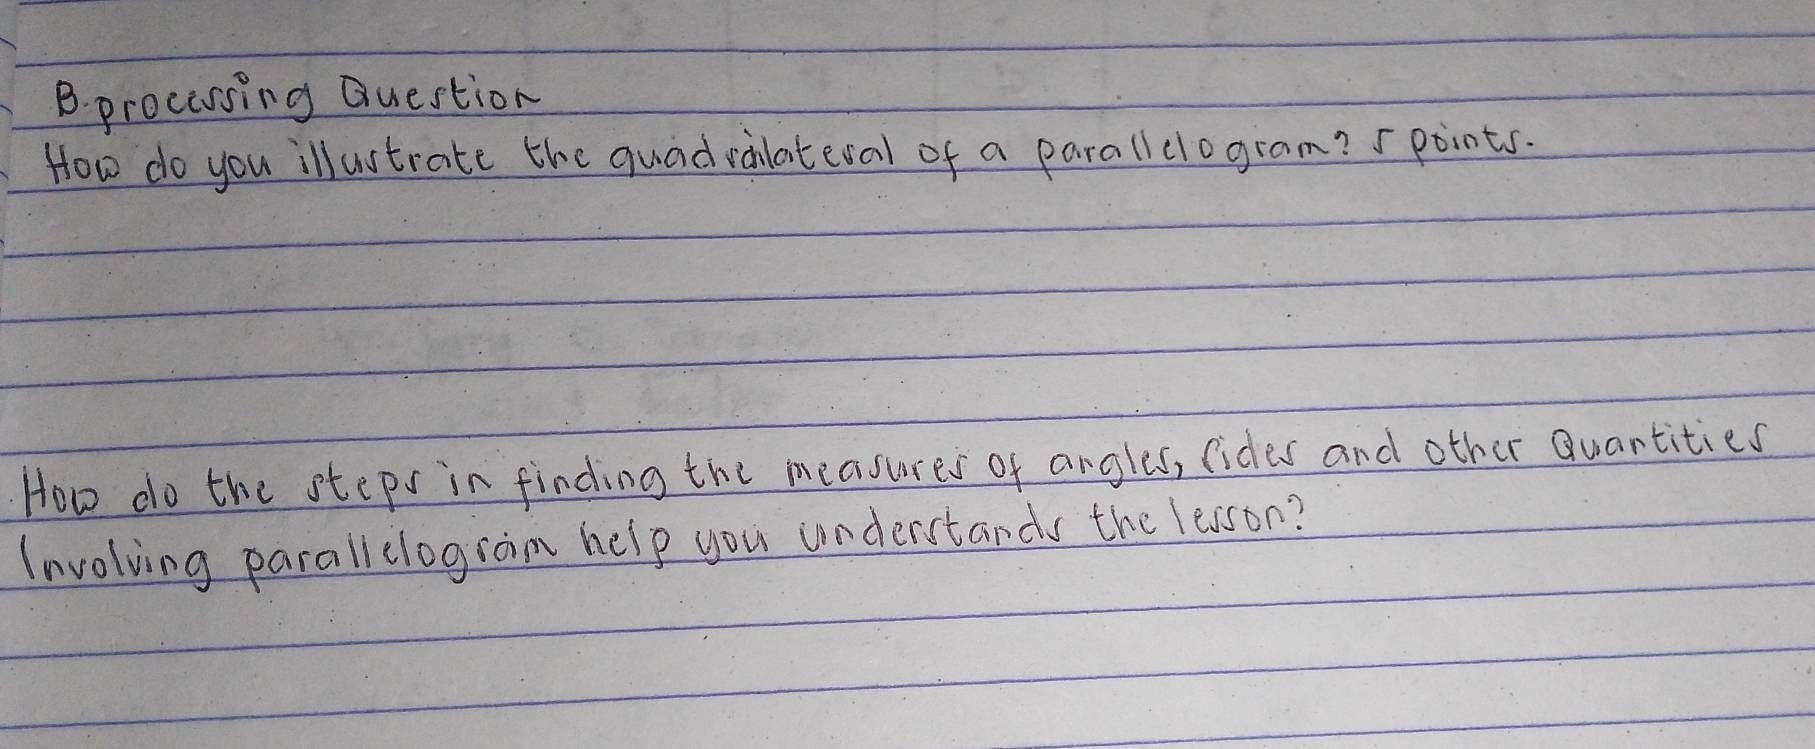 B. processing Question
How do you illustrate the quadrailateral of a parallelogram? 5 points.
How do the steps in finding the measures of angles, sides and other Quantities
Involving parallelogram help you understands the lesson?